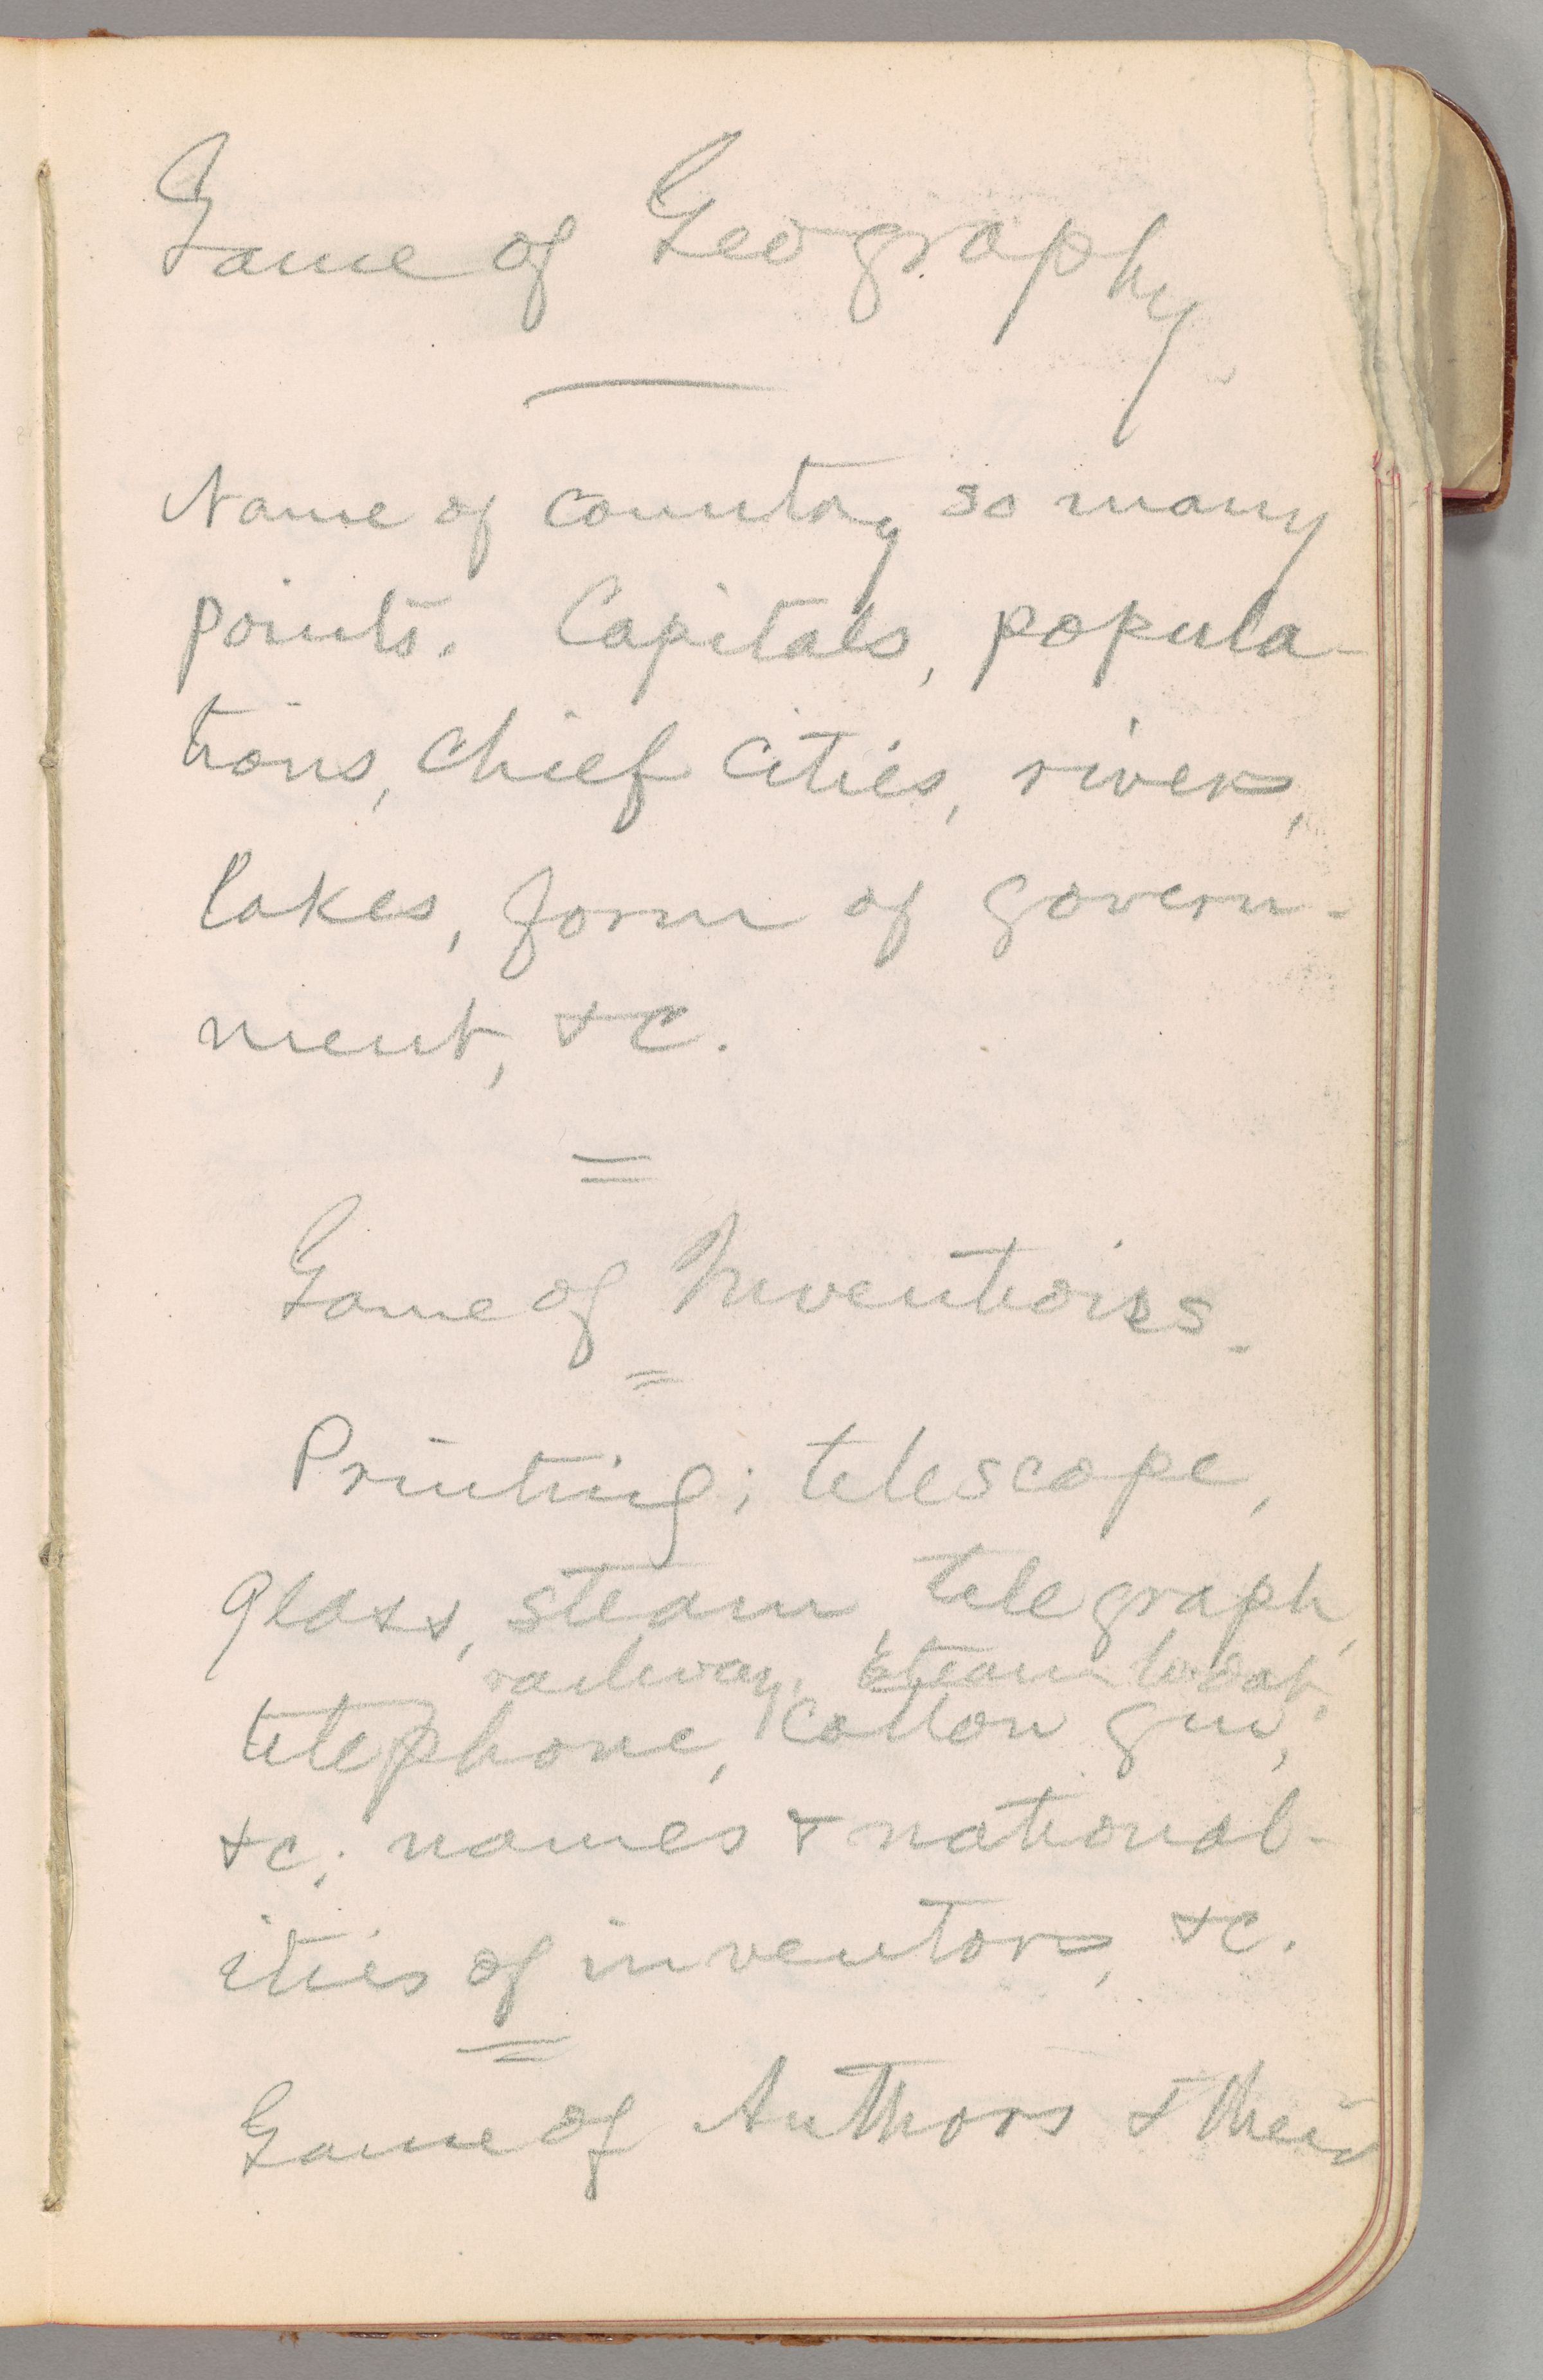 Game of Geography.
Name of country so many
points. Capitals, popula-
tions, chief cities, rivers,
lakes, form of govern-
ment, &c.
Game of Inventions.
Printing; telescope,
glass, steam, telegraph,
railway, steam boat,
telephone, cotton gin,
&c; names & national-
ities of inventors, &c.
Game of Authors & their